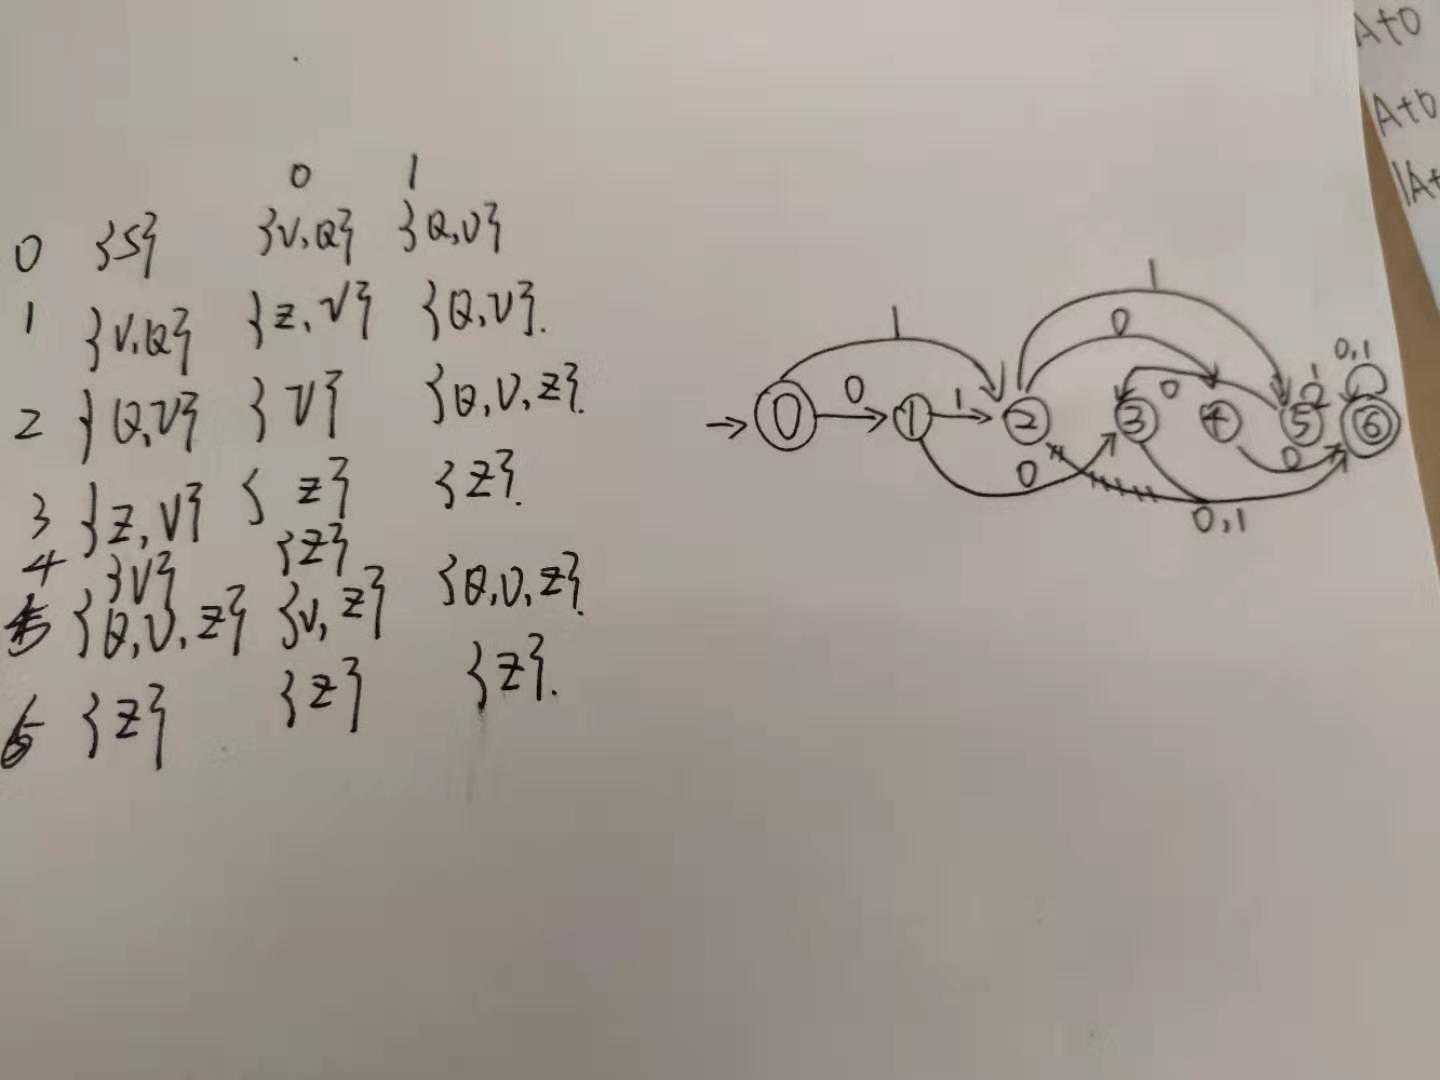 0 1
0 {S} {V,Q} {Q,U}
1 {V,Q} {Z,V} {Q,U}.
2 {Q,U} {V} {Q,U,Z}.
3 {Z,V} {Z} {Z}.
4 {V} {Z}
5 {Q,U,Z} {V,Z} {Q,U,Z}.
6 {Z} {Z} {Z}.
1
1 0
0 1 0 1 0,1
0 1 2 3 4 5 6
0 0
0,1
A+0
A+b
1A+